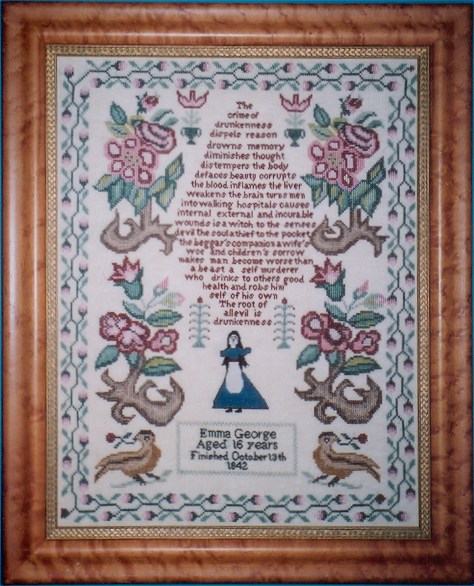 The
crime of
drunkenness
dispels reason
drowns memory
diminishes thought
distempers the body
defaces beauty corrupts
the blood inflames the liver
weakens the brain turns men
into walking hospitals causes
internal external and incurable
wounds is a witch to the senses
devil the soul a thief to the pocket
the beggar's companion a wife's
woe and children's sorrow
makes man become worse than
a beast a self murderer
who drinks to others good
health and robs him
self of his own
The root of
all evil is
drunkenness
Emma George
Aged 16 years
Finished October 13th
1842